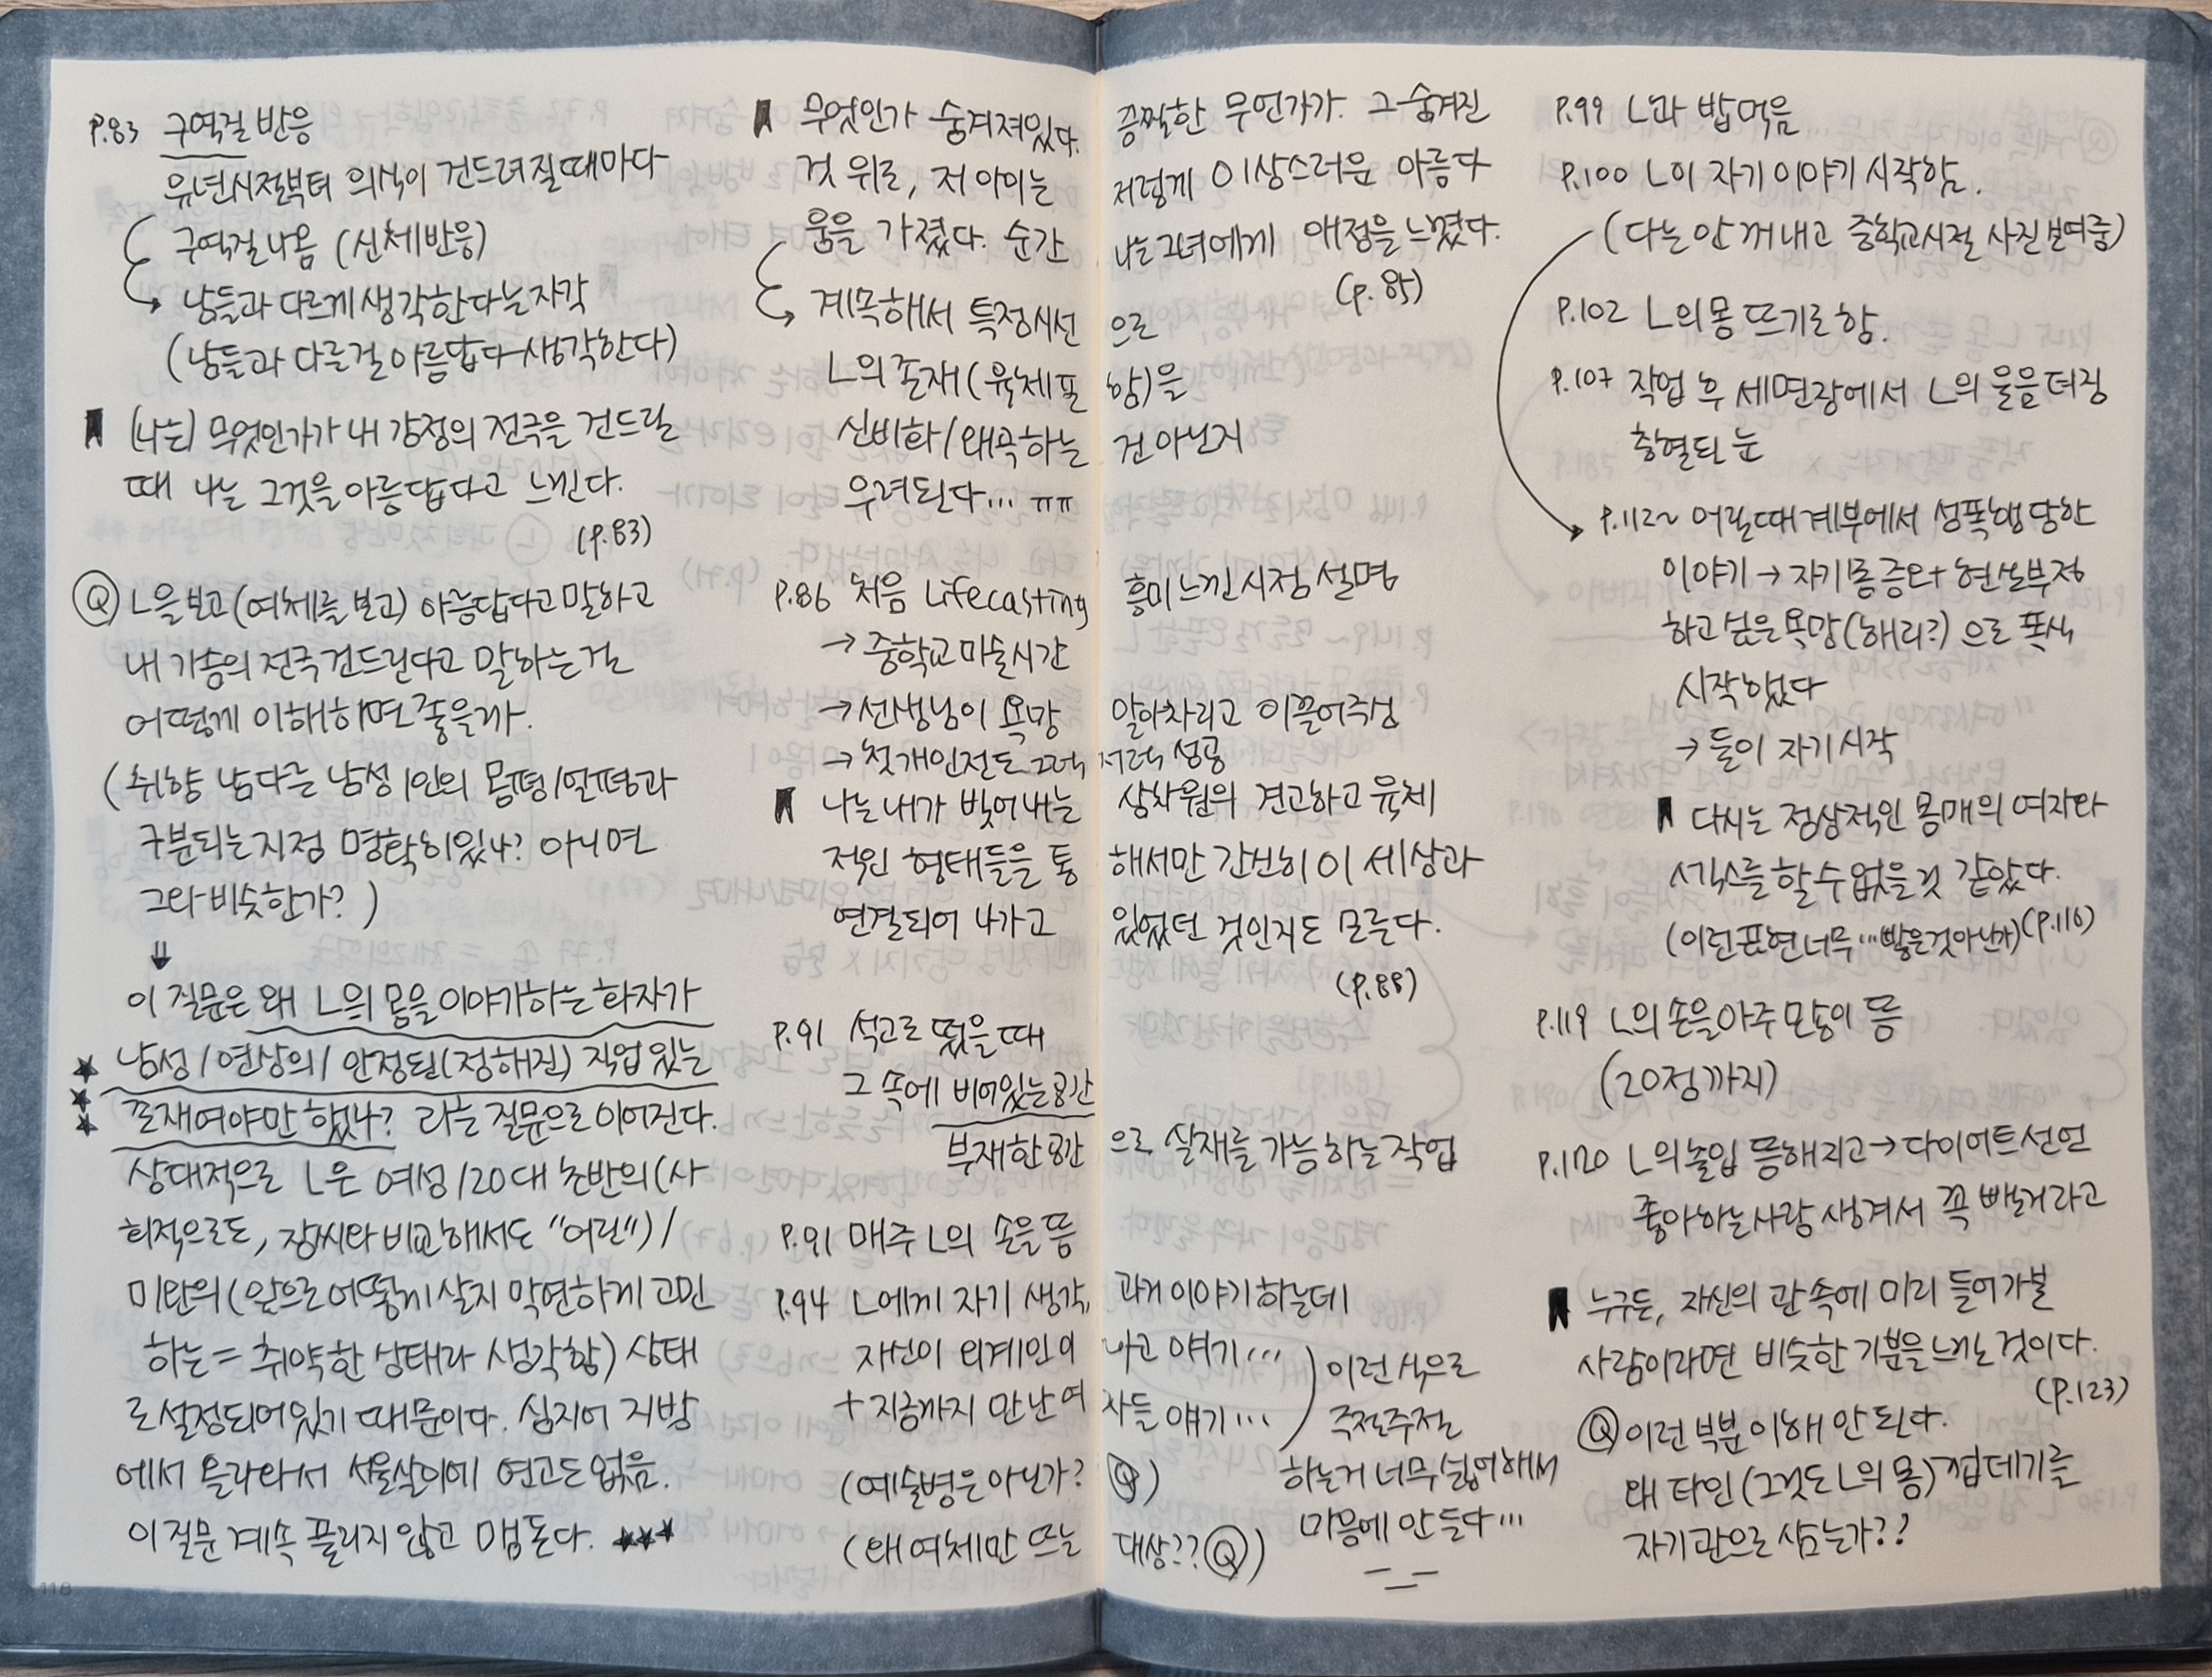 P.83 구역질 반응
유년시절부터 의식이 건드려질때마다
구역질나옴 (신체반응)
남들과 다르게 생각한다는 자각
(남들과 다른걸 아름답다 생각한다)
(나는) 무엇인가가 내 감정의 전극을 건드릴
때 나는 그것을 아름답다고 느낀다.
(P.83)
Q L을 보고(여체를 보고) 아름답다고 말하고
내 가슴의 전극 건드린다고 말하는 건
어떻게 이해하면 좋을까.
(취향 남다른 남성 1인의 몸평/얼평과
구분되는 지점 명확히 있나? 아니면
그와 비슷한가?)
⇓
이 질문은 왜 L의 몸을 이야기하는 화자가
★ 남성/연상의/안정된(정해진) 직업 있는
★ 존재여야만 했나? 라는 질문으로 이어진다.
★
상대적으로 L은 여성/20대 초반의(사
회적으로도, 장씨와 비교해서도 "어린")/
미완의(앞으로 어떻게 살지 막연하게 고민
하는 = 취약한 상태라 생각함) 상태
로 설정되어있기 때문이다. 심지어 지방
에서 올라와서 서울살이에 연고도 없음.
이 질문 계속 풀리지 않고 맴돈다. ★★★
118
무엇인가 숨겨져있다. 끔찍한 무언가가. 그 숨겨진
것 위로, 저 아이는 저렇게 이상스러운 아름다
움을 가졌다. 순간 나는 그녀에게 애정을 느꼈다.
(P.85)
계속해서 특정시선으로
L의 존재(육체포함)을
신비화/왜곡하는 건 아닌지
우려된다... ㅠㅠ
P.86 처음 Lifecasting 흥미느낀 시점 설명
→ 중학교 미술시간
→ 선생님이 욕망 알아차리고 이끌어주심
→ 첫 개인전도 그럭저럭 성공
나는 내가 빚어내는 삼차원의 견고하고 육체
적인 형태들을 통해서만 간신히 이 세상과
연결되어 나가고 있었던 것인지도 모른다.
(P.88)
P.91 석고로 떴을 때
그 속에 비어있는 공간
부재한 공간으로 실재를 가능하는 작업
P.91 매주 L의 손을 뜸
P.94 L에게 자기 생각, 과거 이야기 하는데
자신이 외계인이냐고 얘기...
+ 지금까지 만난 여자들 얘기...
) 이런 식으로
주절주절
하는거 너무 싫어해서
마음에 안 든다...
(예술병은 아닌가? Q)
(왜 여체만 뜨는 대상?? Q)
P.99 L과 밥먹음
P.100 L이 자기 이야기 시작함.
(다는 안 꺼내고 중학교시절 사진 보여줌)
P.102 L의 몸 뜨기로 함.
P.107 작업 후 세면장에서 L의 울음 터짐
충혈된 눈
P.112~ 어릴때 계부에서 성폭행 당한
이야기 → 자기몸 증오 + 현실부정
하고 싶은 욕망(해리?) 으로 폭식
시작했다
→ 둘이 자기 시작
다시는 정상적인 몸매의 여자와
섹스를 할 수 없을 것 같았다.
(P.116)
(이런 표현 너무... 빻은것 아닌가)
P.119 L의 손을 아주 많이 뜸
(20점까지)
P.120 L의 몰입 뜸해지고 → 다이어트 선언
좋아하는 사람 생겨서 꼭 뺄거라고
누구든, 자신의 관 속에 미리 들어가본
사람이라면 비슷한 기분을 느끼는 것이다.
(P.123)
Q 이런 부분 이해 안 된다.
왜 타인(그것도 L의 몸) 껍데기를
자기 관으로 삼는가??
119